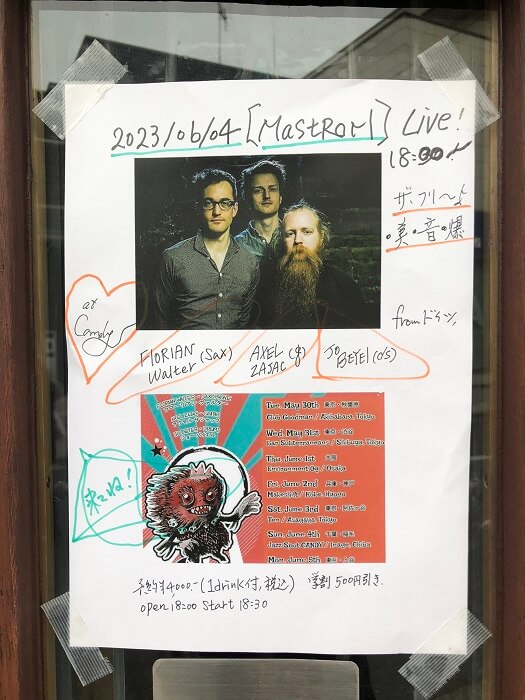 2023/06/04 [MASTROM] Live!
18:30〜
ザ・フリ〜よ
・美・音・爆
at Candy
from ドイツ,
FLORIAN Walter (Sax)
AXEL ZAJAC (g)
JO BEYEL (Ds)
来てね!
Tue. May 30th 東京・秋葉原
Club Goodman / Akihabara, Tokyo
Wed. May 31st 東京・渋谷
Bar Subterraneans / Shibuya, Tokyo
Thu. June 1st 大阪
Environment 0g / Osaka
Fri. June 2nd 兵庫・神戸
/ Kobe, Hyogo
Sat. June 3rd 東京・阿佐ヶ谷
Yen / Asagaya, Tokyo
Sun. June 4th 千葉・稲毛
Jazz Spot CANDY / Inage, Chiba
Mon. June 5th 東京・
予約¥4000-(1drink付,税込) 学割500円引き.
open 18:00 Start 18:30